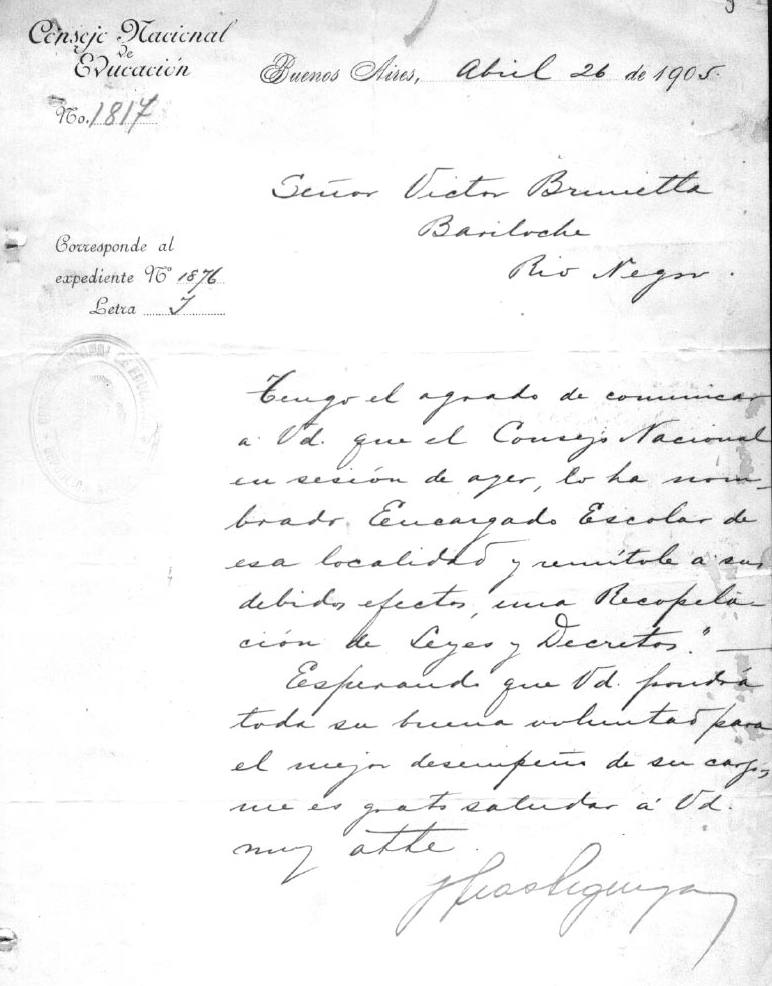 Consejo Nacional
de
Educación
Buenos Aires, Abril 26 de 1905.
No. 1817
Señor Victor Brunetta
Bariloche
Rio Negro.
Corresponde al
expediente Nº 1876
Letra I
Tengo el agrado de comunicar
a Vd. que el Consejo Nacional
en sesión de ayer, lo ha nom-
brado Encargado Escolar de
esa localidad y remítole a sus
debidos efectos, una Recopila-
ción de Leyes y Decretos."
Esperando que Vd. pondrá
toda su buena voluntad para
el mejor desempeño de su cargo,
me es grato saludar á Vd.
muy atte.